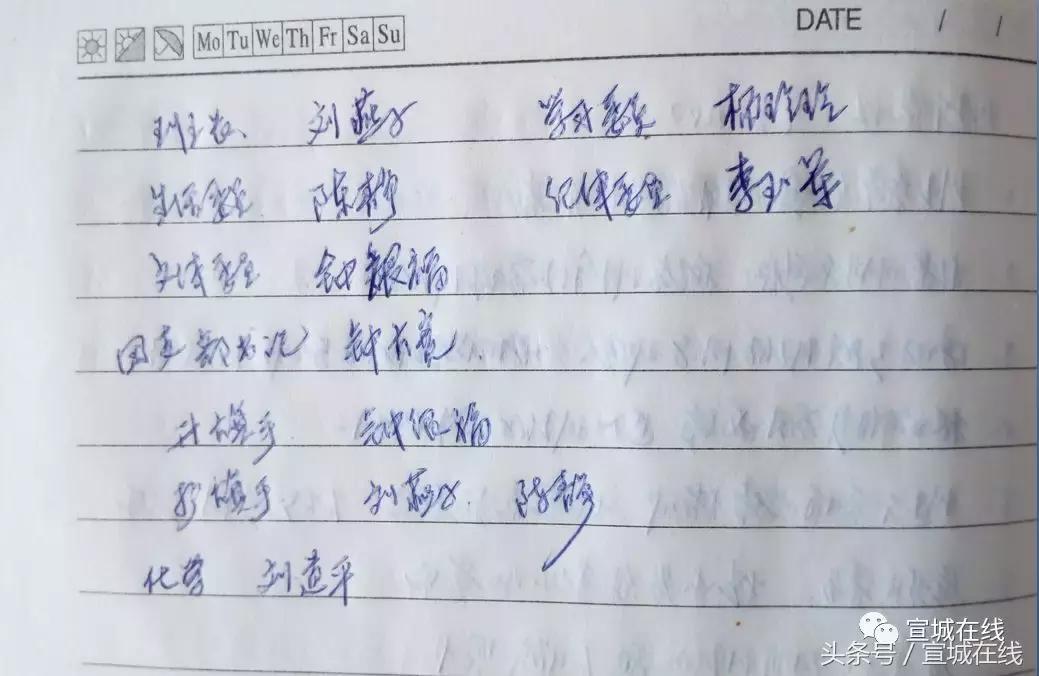 Mo Tu We Th Fr Sa Su DATE / /
班主任 刘燕子 学习委员 杨玲玲
生活委员 陈梅 纪律委员 李
文体委员 钟银福
钟
升旗手 钟银福
护旗手 刘燕子 陈梅
化学 刘道平
宣城在线
头条号 / 宣城在线